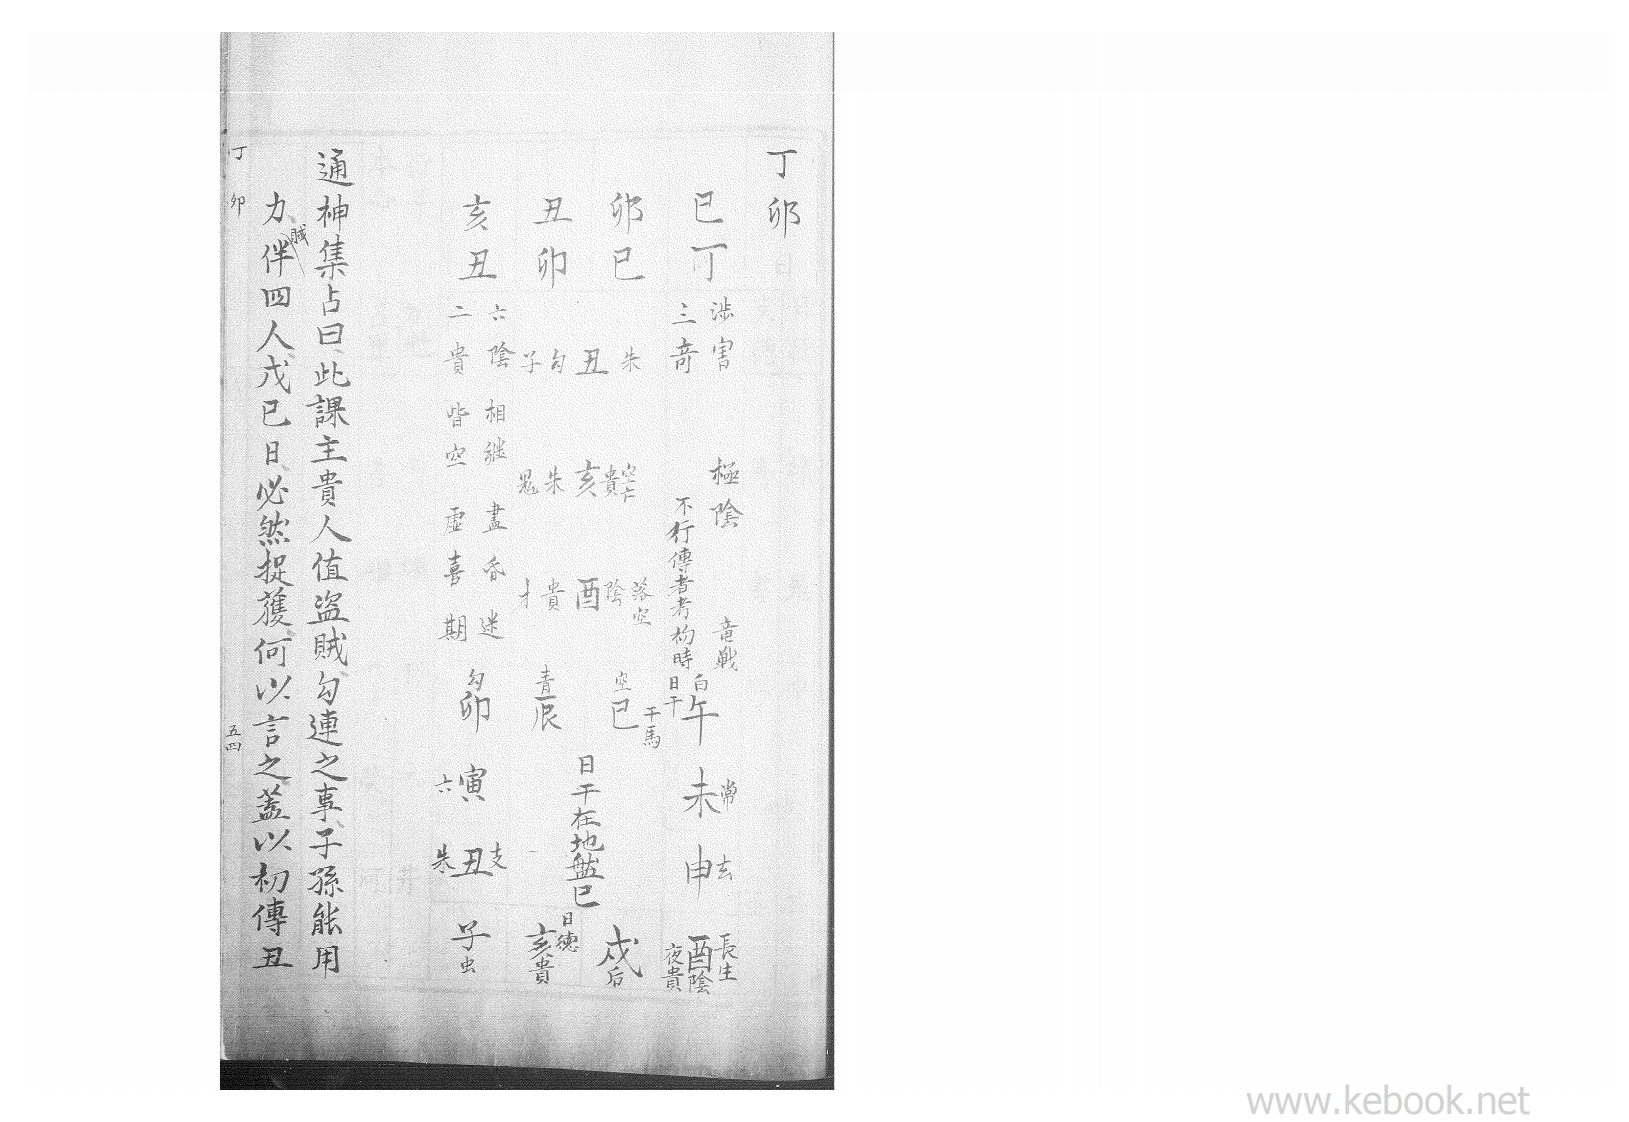 丁卯
巳丁
卯巳
丑卯
亥丑
涉害
三奇
極陰
不行傳者考初時
竜戰
朱丑勾子
空亡貴亥朱鬼
落空陰酉貴才
六陰相継盡昏迷
二貴皆空虚喜期
日干
白午
常未
玄申
長生酉陰
夜貴
干馬
空巳
青辰
勾卯
六寅
支丑朱
子虫
日德亥貴
戌后
日干在地盤巳
通神集占曰此課主貴人值盗賊勾連之事子孫能用
力伴賊四人戊巳日必然捉獲何以言之蓋以初傳丑
丁卯
五四
www.kebook.net